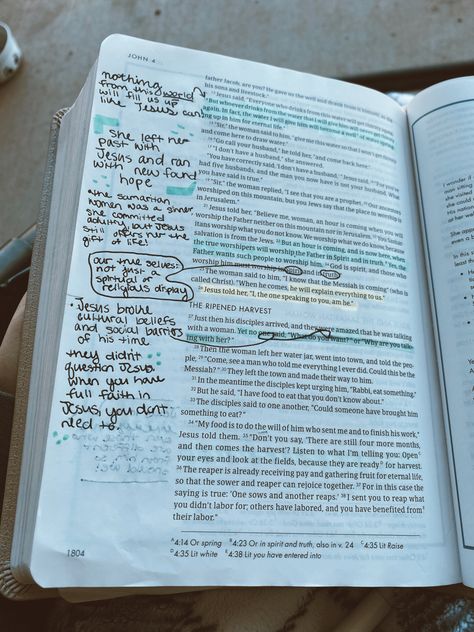 JOHN 4
nothing
from this world
will fill us up
like Jesus can!
she left her
past with
Jesus and ran
with new found
hope
the samaritan
women was a sinner.
she committed
adultry, but Jesus
still offers her the
gift of life!
our true selves:
not just a
spiritual or
religious display
Jesus broke
cultural beliefs
and social barriers
of his time
they didn't
question Jesus.
when you have
full faith in
Jesus, you don't
need to.
father Jacob, are you? He gave us the well and drank from it himself, as did
his sons and livestock."
13 Jesus said, "Everyone who drinks from this water will get thirsty again.
14 But whoever drinks from the water that I will give him will never get thirsty
again. In fact, the water I will give him will become a well of water springing
up in him for eternal life."
15 "Sir," the woman said to him, "give me this water so that I won't get thirsty
and come here to draw water."
16 "Go call your husband," he told her, "and come back here."
17 "I don't have a husband," she answered.
"You have correctly said, 'I don't have a husband,'" Jesus said. 18 "For you've
had five husbands, and the man you now have is not your husband. What
you have said is true."
19 "Sir," the woman replied, "I see that you are a prophet. 20 Our ancestors
worshiped on this mountain, but you Jews say that the place to worship is
in Jerusalem."
21 Jesus told her, "Believe me, woman, an hour is coming when you will
worship the Father neither on this mountain nor in Jerusalem. 22 You Samaritans
worship what you do not know. We worship what we do know, because
salvation is from the Jews. 23 But an hour is coming, and is now here, when
the true worshipers will worship the Father in Spirit and in truth. Yes, the
Father wants such people to worship him. 24 God is spirit, and those who
worship him must worship in Spirit and in truth."
25 The woman said to him, "I know that the Messiah is coming" (who is
called Christ). "When he comes, he will explain everything to us."
26 Jesus told her, "I, the one speaking to you, am he."
THE RIPENED HARVEST
27 Just then his disciples arrived, and they were amazed that he was talking
with a woman. Yet no one said, "What do you want?" or "Why are you talking
with her?"
28 Then the woman left her water jar, went into town, and told the people,
29 "Come, see a man who told me everything I ever did. Could this be the
Messiah?" 30 They left the town and made their way to him.
31 In the meantime the disciples kept urging him, "Rabbi, eat something."
32 But he said, "I have food to eat that you don't know about."
33 The disciples said to one another, "Could someone have brought him
something to eat?"
34 "My food is to do the will of him who sent me and to finish his work,"
Jesus told them. 35 "Don't you say, 'There are still four more months,
and then comes the harvest'? Listen to what I'm telling you: Open
your eyes and look at the fields, because they are ready for harvest.
36 The reaper is already receiving pay and gathering fruit for eternal life,
so that the sower and reaper can rejoice together. 37 For in this case the
saying is true: 'One sows and another reaps.' 38 I sent you to reap what
you didn't labor for; others have labored, and you have benefited from
their labor."
A4:14 Or spring B4:23 Or in spirit and truth, also in v. 24 C4:35 Lit Raise
D4:35 Lit white E4:38 Lit you have entered into
1804